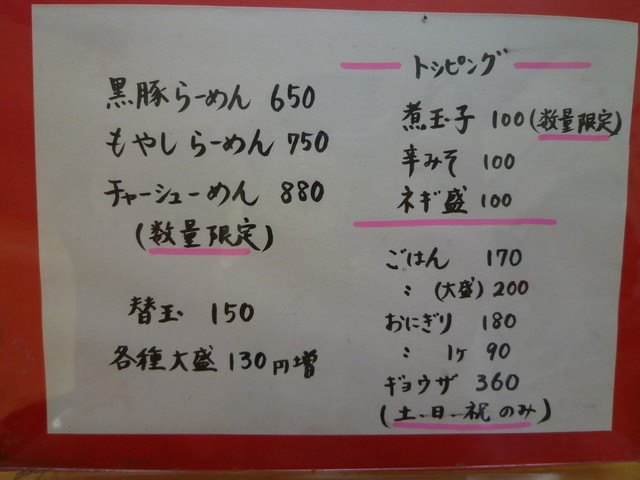 黒豚らーめん 650
もやしらーめん 750
チャーシューめん 880
(数量限定)
替玉 150
各種大盛 130円増
トッピング
煮玉子 100(数量限定)
辛みそ 100
ネギ盛 100
ごはん 170
〃 (大盛) 200
おにぎり 180
〃 1ヶ 90
ギョウザ 360
(土・日・祝のみ)